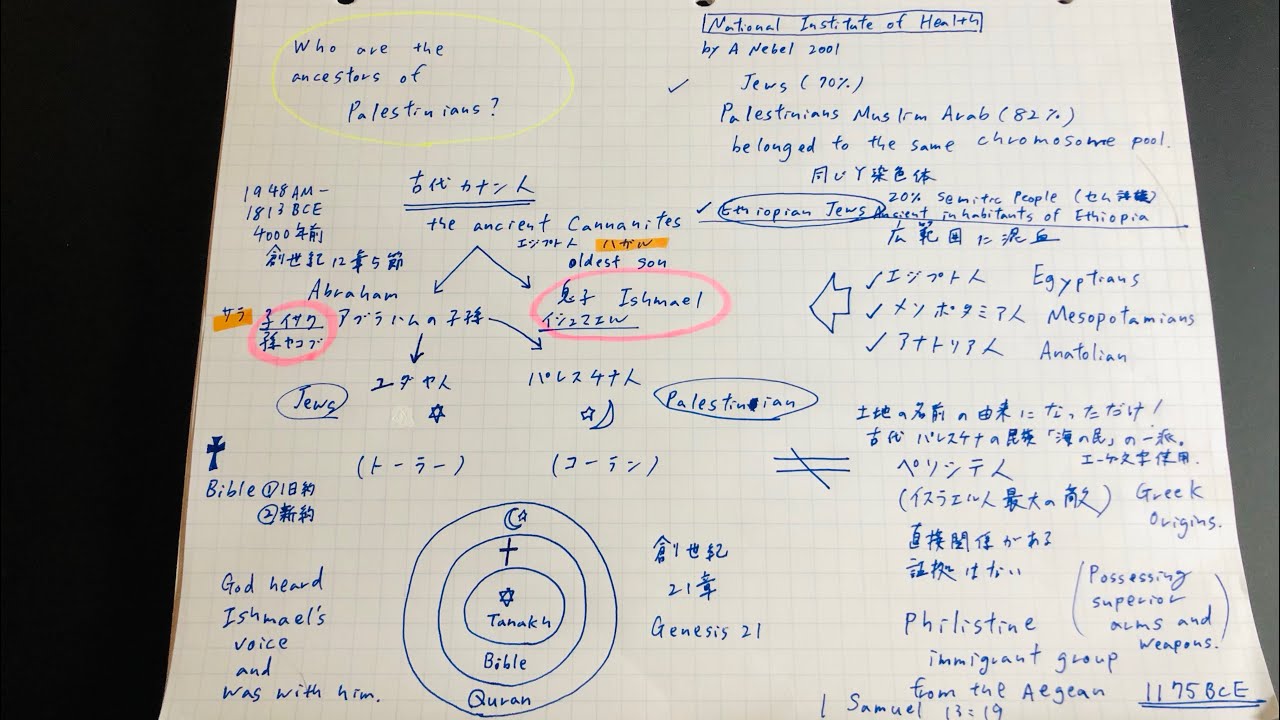 Who are the
ancestors of
Palestinians?
National Institute of Health
by A Nebel 2001
Jews (70%)
Palestinians Muslim Arab (82%)
belonged to the same chromosome pool.
同じY染色体
Ethiopian Jews
20% Semitic People (セム
Ancient inhabitants of Ethiopia
広範囲に混血
1948AM-
1813BCE
4000年前
創世紀12章5節
古代カナン人
the ancient Cannanites
エジプト人 ハガル
oldest son
Abraham
サラ
子イサク
孫ヤコブ
アブラハムの子孫
息子 Ishmael
イシュマエル
エジプト人 Egyptians
メソポタミア人 Mesopotamians
アナトリア人 Anatolian
ユダヤ人
パレスチナ人
Jews
Palestinian
(トーラー)
(コーラン)
Bible ①旧約
②新約
土地の名前の由来になっただけ!
古代パレスチナの民族「海の民」の一派。
エーゲ文字使用.
ペリシテ人
(イスラエル人最大の敵)
Greek
Origins.
直接関係がある
証拠はない
God heard
Ishmael's
voice
and
was with him.
Tanakh
Bible
Quran
創世紀
21章
Genesis 21
Philistine
immigrant group
from the Aegean
(Possessing
superior
arms and
weapons.)
1175BCE
1 Samuel 13:19